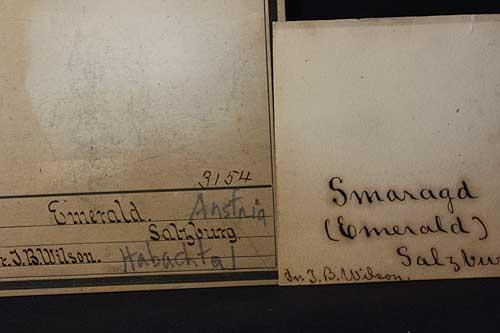 3154
Emerald. Austria
Salzburg.
r. J. B. Wilson. Habachtal
Smaragd
(Emerald)
Salzbur
Dr. J. B. Wilson.